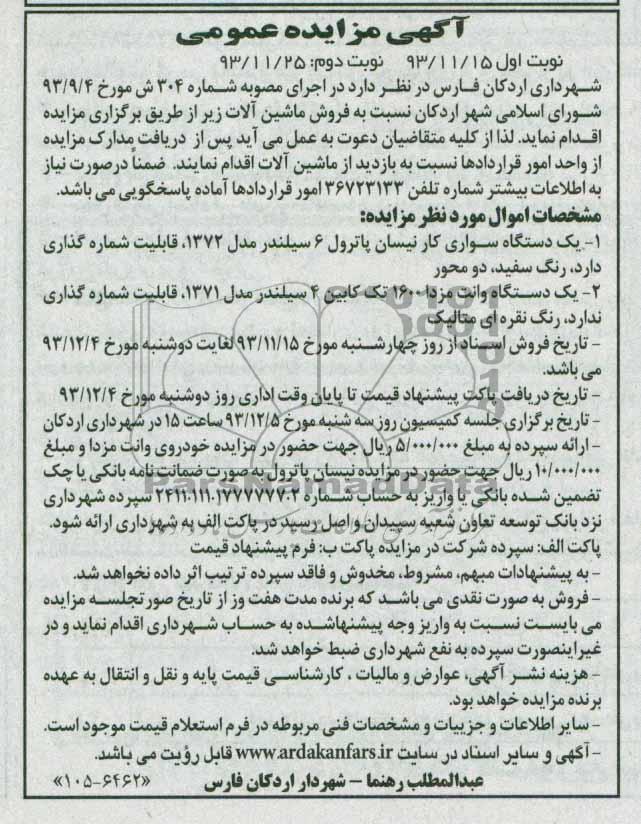 آگهی مزایده عمومی
نوبت اول ۹۳/۱۱/۱۵ نوبت دوم: ۹۳/۱۱/۲۵
شهرداری اردکان فارس در نظر دارد در اجرای مصوبه شماره ۳۰۴ ش مورخ ۹۳/۹/۴
شورای اسلامی شهر اردکان نسبت به فروش ماشین آلات زیر از طریق برگزاری مزایده
اقدام نماید. لذا از کلیه متقاضیان دعوت به عمل می آید پس از دریافت مدارک مزایده
از واحد امور قراردادها نسبت به بازدید از ماشین آلات اقدام نمایند. ضمناً درصورت نیاز
به اطلاعات بیشتر شماره تلفن ۳۶۷۲۳۱۳۳ امور قراردادها آماده پاسخگویی می باشد.
مشخصات اموال مورد نظر مزایده:
۱- یک دستگاه سواری کار نیسان پاترول ۶ سیلندر مدل ۱۳۷۲، قابلیت شماره گذاری
دارد، رنگ سفید، دو محور
۲- یک دستگاه وانت مزدا ۱۶۰۰ تک کابین ۴ سیلندر مدل ۱۳۷۱، قابلیت شماره گذاری
ندارد، رنگ نقره ای متالیک
- تاریخ فروش اسناد از روز چهارشنبه مورخ ۹۳/۱۱/۱۵ لغایت دوشنبه مورخ ۹۳/۱۲/۴
می باشد.
- تاریخ دریافت پاکت پیشنهاد قیمت تا پایان وقت اداری روز دوشنبه مورخ ۹۳/۱۲/۴
- تاریخ برگزاری جلسه کمیسیون روز سه شنبه مورخ ۹۳/۱۲/۵ ساعت ۱۵ در شهرداری اردکان
- ارائه سپرده به مبلغ ۵/۰۰۰/۰۰۰ ریال جهت حضور در مزایده خودروی وانت مزدا و مبلغ
۱۰/۰۰۰/۰۰۰ ریال جهت حضور در مزایده نیسان پاترول به صورت ضمانت نامه بانکی یا چک
تضمین شده بانکی یا واریز به حساب شماره ۲۴۱۱.۱۱۱.۱۷۷۷۷۷۷.۲ سپرده شهرداری
نزد بانک توسعه تعاون شعبه سپیدان و اصل رسید در پاکت الف به شهرداری ارائه شود.
پاکت الف: سپرده شرکت در مزایده پاکت ب: فرم پیشنهاد قیمت
- به پیشنهادات مبهم، مشروط، مخدوش و فاقد سپرده ترتیب اثر داده نخواهد شد.
- فروش به صورت نقدی می باشد که برنده مدت هفت وز از تاریخ صورتجلسه مزایده
می بایست نسبت به واریز وجه پیشنهاشده به حساب شهرداری اقدام نماید و در
غیراینصورت سپرده به نفع شهرداری ضبط خواهد شد.
- هزینه نشر آگهی، عوارض و مالیات ، کارشناسی قیمت پایه و نقل و انتقال به عهده
برنده مزایده خواهد بود.
- سایر اطلاعات و جزییات و مشخصات فنی مربوطه در فرم استعلام قیمت موجود است.
- آگهی و سایر اسناد در سایت www.ardakanfars.ir قابل رؤیت می باشد.
عبدالمطلب رهنما - شهردار اردکان فارس «۱۰۵-۶۴۶۲»
ParsNamadData